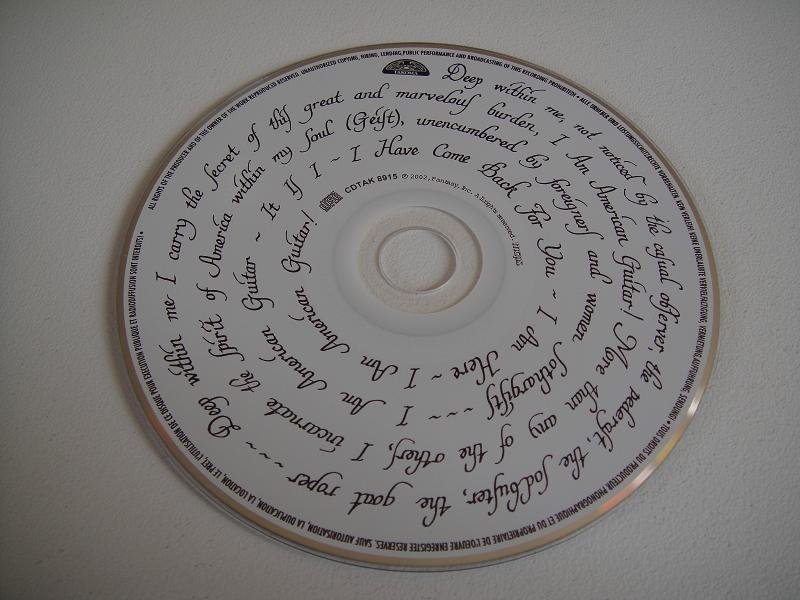 ALL RIGHTS OF THE PRODUCER AND OF THE OWNER OF THE WORK REPRODUCED RESERVED. UNAUTHORISED COPYING, HIRING, LENDING, PUBLIC PERFORMANCE AND BROADCASTING OF THIS RECORDING PROHIBITED • ALLE URHEBER UND LEISTUNGSSCHUTZRECHTE VORBEHALTEN. KEIN VERLEIH! KEINE UNERLAUBTE VERVIELFÄLTIGUNG, VERMIETUNG, AUFFÜHRUNG, SENDUNG! • TOUS DROITS DU PRODUCTEUR PHONOGRAPHIQUE ET DU PROPRIETAIRE DE L'OEUVRE ENREGISTREE RESERVES. SAUF AUTORISATION, LA DUPLICATION, LA LOCATION, LE PRET, L'UTILISATION DE CE DISQUE POUR EXECUTION PUBLIQUE ET RADIODIFFUSION SONT INTERDITS •
TAKOMA
Deep within me, not noticed by the casual observer, the pederast, the sodbuster, the goat roper ~~~
Deep within me I carry the secret of this great and marvelous burden, I Am American Guitar! More than any of the others, I incarnate the Spirit of America within my Soul (Geist), unencumbered by foreigners and women ~~~ I Am American Guitar ~ It Is I ~ I Have Come Back For You ~ I Am Here ~ I Am American Guitar!
CDTAK 8915 ℗ © 2002, Fantasy, Inc. All rights reserved.